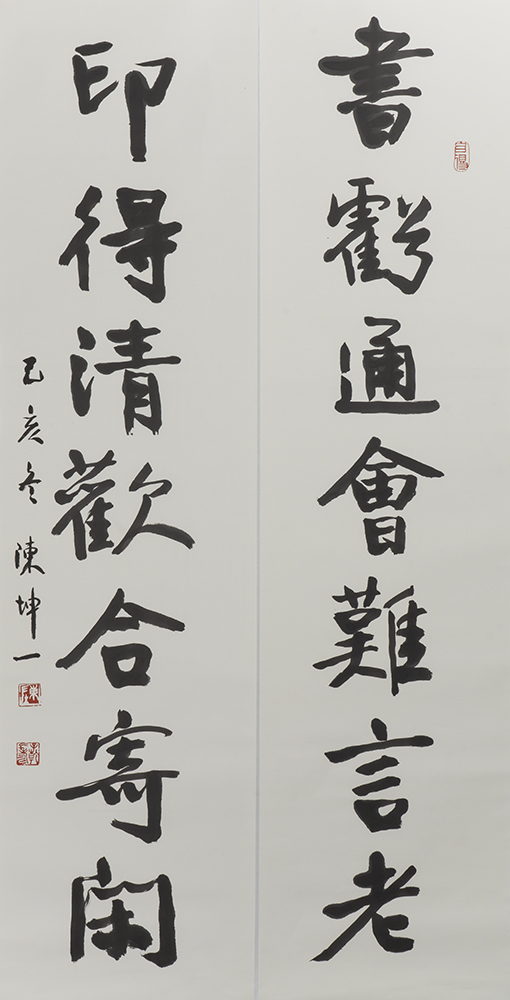 書虧通會難言老
印得清歡合寄閑
己亥冬陳坤一